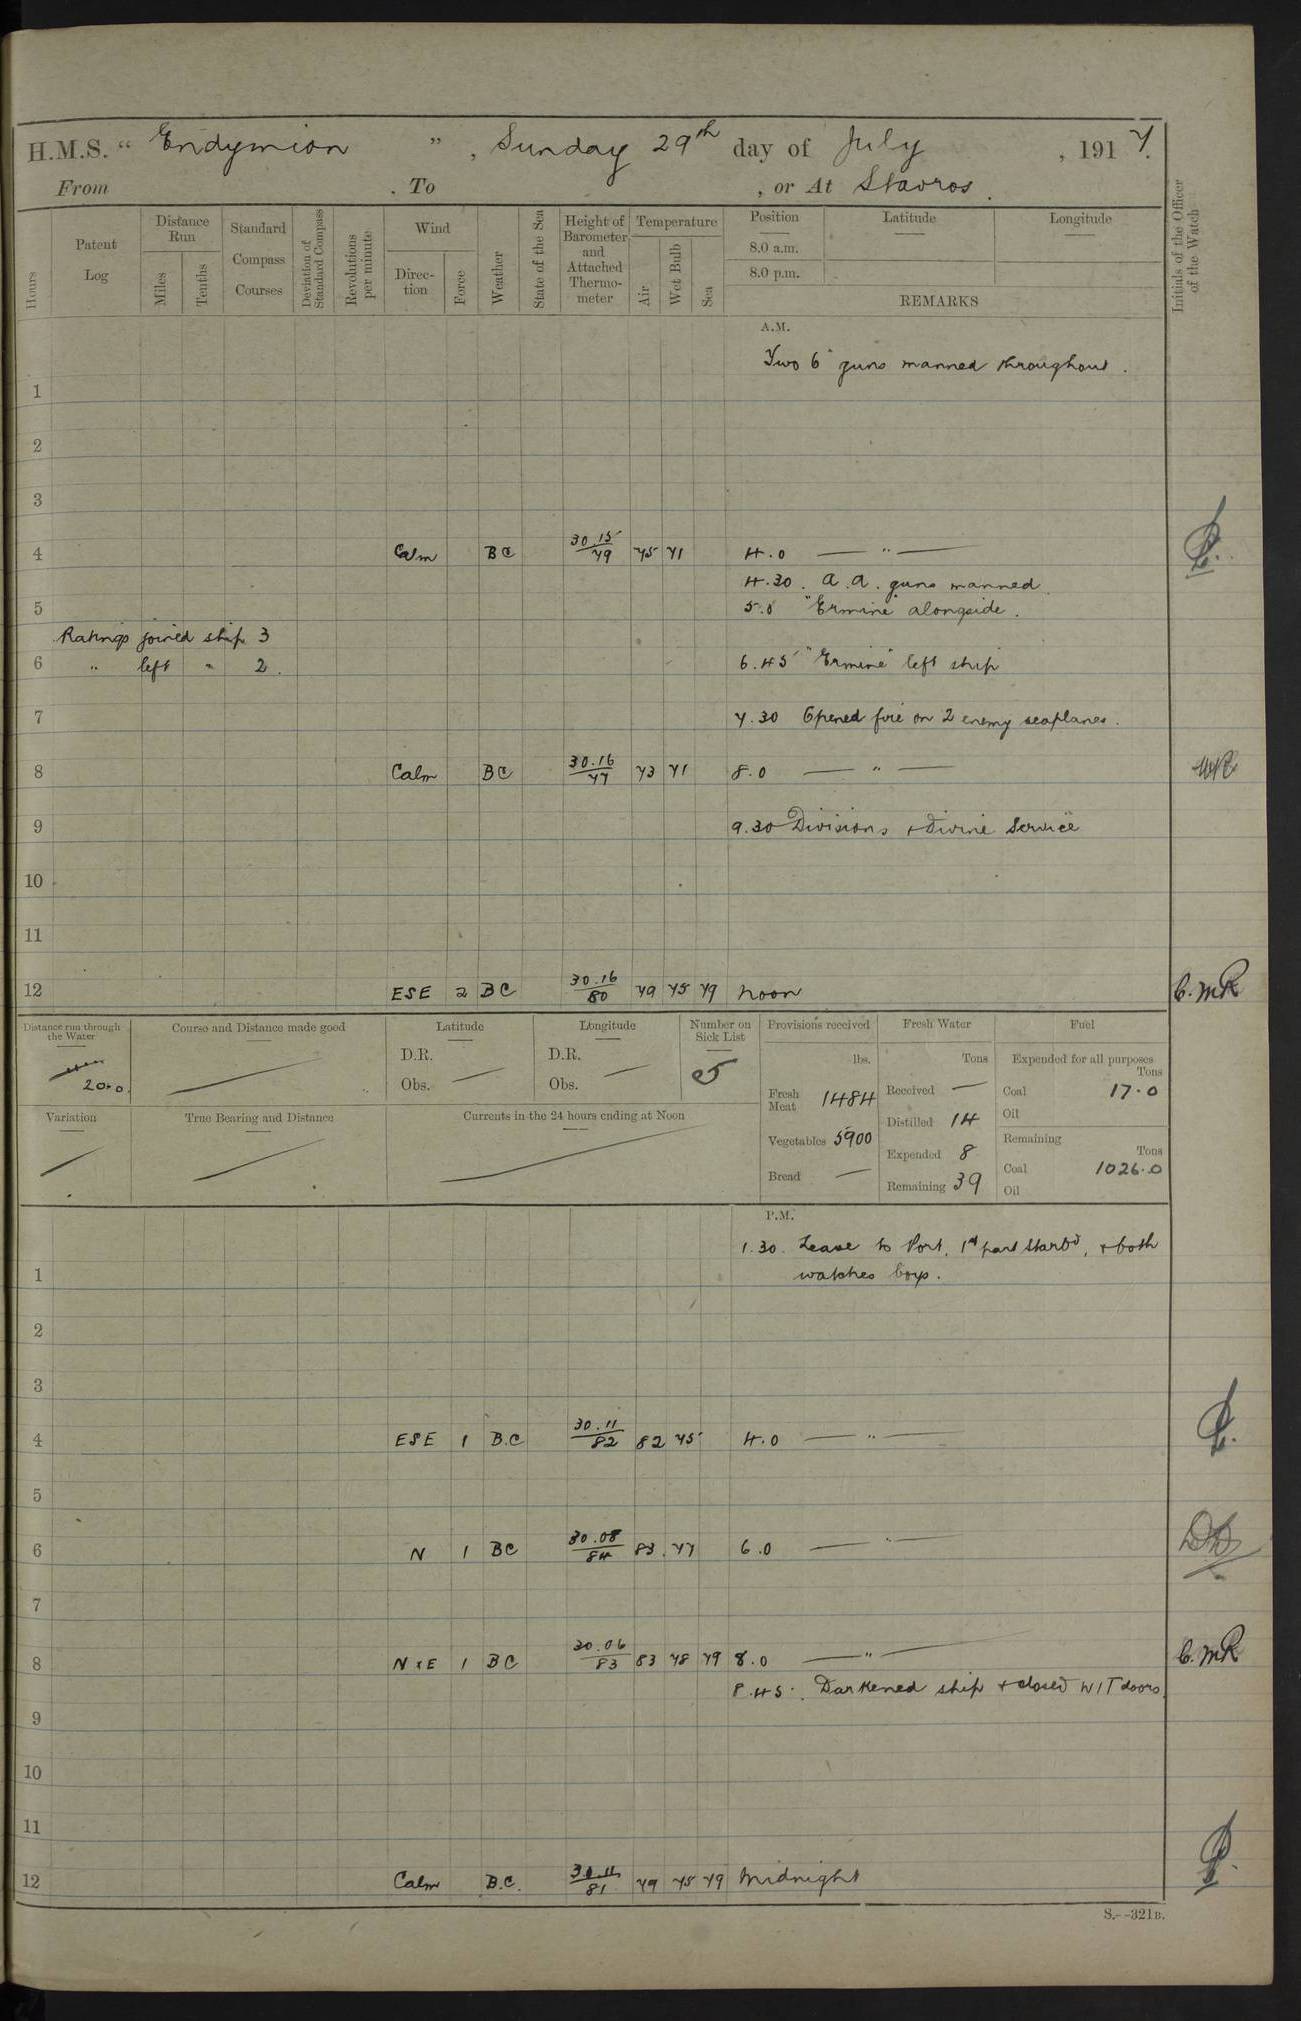 H.M.S. “ Endymion ”, Sunday 29th day of July, 1917.
From , To , or At Stavros.
Hours
Patent Log
Distance Run
Miles
Tenths
Standard Compass Courses
Deviation of Standard Compass
Revolutions per minute
Wind
Direction
Force
Weather
State of the Sea
Height of Barometer and Attached Thermometer
Temperature
Air
Wet Bulb
Sea
Position
Latitude
Longitude
8.0 a.m.
8.0 p.m.
REMARKS
Initials of the Officer of the Watch
A.M.
Two 6" guns manned throughout.
1
2
3
4 Calm BC 30.15/79 75 71 4.0 — " —
4.30. A.A. guns manned.
5 5.0 "Ermine" alongside.
Ratings joined ship 3
6 " left " 2. 6.45 "Ermine" left ship
7 7.30 Opened fire on 2 enemy seaplanes.
8 Calm BC 30.16/77 73 71 8.0 — " —
9 9.30 Divisions & Divine Service
10
11
12 ESE 2 BC 30.16/80 79 75 79 Noon C.MR
Distance run through the Water
20.0.
Course and Distance made good
Latitude
D.R.
Obs. —
Longitude
D.R.
Obs. —
Number on Sick List
5
Provisions received
lbs.
Fresh Meat 1484
Vegetables 5900
Bread —
Fresh Water
Tons
Received —
Distilled 14
Expended 8
Remaining 39
Fuel
Expended for all purposes
Tons
Coal 17.0
Oil
Remaining
Tons
Coal 1026.0
Oil
Variation
True Bearing and Distance
Currents in the 24 hours ending at Noon
P.M.
1.30. Leave to Port, 1st part Starbd, & both
1 watches boys.
2
3
4 ESE 1 B.C 30.11/82 82 75 4.0 — " —
5
6 N 1 BC 30.08/84 83 77 6.0 — " —
7
8 N x E 1 BC 30.06/83 83 78 79 8.0 — " — C.MR
8.45. Darkened ship & closed W/T doors.
9
10
11
12 Calm B.C. 30.11/81 79 75 79 Midnight
S.--321B.